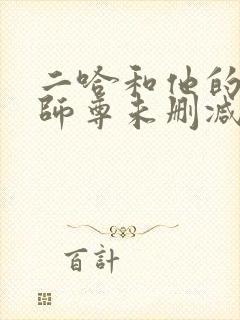 二哈和他的
师尊未删减
百計